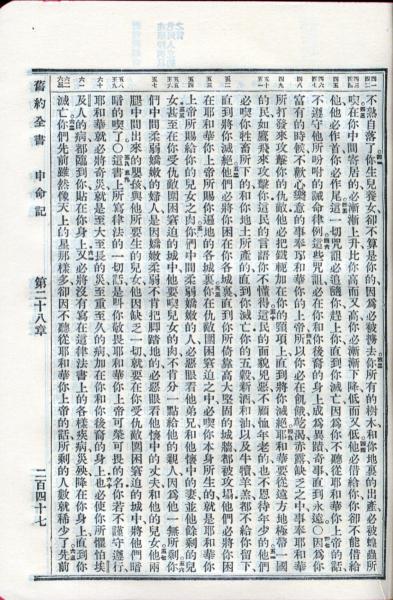 舊約全書　申命記　第二十八章　二百四十七
不熟自落了你生兒養女卻不算是你的因爲必被擄去你所有的樹木和你地裏的出產必被蝗蟲所
喫在你中間寄居的必漸漸上升比你高而又高你必漸漸下降低而又低他必借給你你卻不能借給
他他必作首你必作尾這一切咒詛必追隨你趕上你直到你滅亡因爲你不聽從耶和華你上帝的話
不遵守他所吩咐的誡命律例這些咒詛必在你和你後裔的身上成爲異蹟奇事直到永遠○因爲你
富有的時候不歡心樂意的事奉耶和華你的上帝所以你必在飢餓乾渴赤露缺乏之中事奉耶和華
所打發來攻擊你的仇敵他必把鐵軛加在你的頸項上直到將你滅絕耶和華要從遠方地極帶一國
的民如鷹飛來攻擊你這民的言語你不懂得這民的面貌兇惡不顧恤年老的也不恩待年少的他們
必喫你牲畜所下的和你地土所產的直到你滅亡你的五穀新酒和油以及牛犢羊羔都不給你留下
直到將你滅絕他們必將你困在你各城裏直到你所倚靠高大堅固的城牆都被攻塌他們必將你困
在耶和華你上帝所賜你遍地的各城裏你在仇敵圍困窘迫之中必喫你本身所生的就是耶和華你
上帝所賜給你的兒女之肉你們中間柔弱嬌嫩的人必惡眼看他弟兄和他懷中的妻並他餘剩的兒
女甚至在你受仇敵圍困窘迫的城中他要喫兒女的肉不肯分一點給他的親人因爲他一無所剩你
們中間柔弱嬌嫩的婦人是因嬌嫩柔弱不肯把腳踏地的必惡眼看他懷中的丈夫和他的兒女他兩
腿中間出來的嬰孩與他所要生的兒女他因缺乏一切就要在你受仇敵圍困窘迫的城中將他們暗
暗的喫了○這書上所寫律法的一切話是叫你敬畏耶和華你上帝可榮可畏的名你若不謹守遵行
耶和華就必將奇災就是至大至長的災至重至久的病加在你和你後裔的身上也必使你所懼怕埃
及人的病都臨到你貼在你身上又必將沒有寫在這律法書上的各樣疾病災殃降在你身上直到你
滅亡你們先前雖然像天上的星那樣多卻因不聽從耶和華你上帝的話所剩的人數就稀少了先前